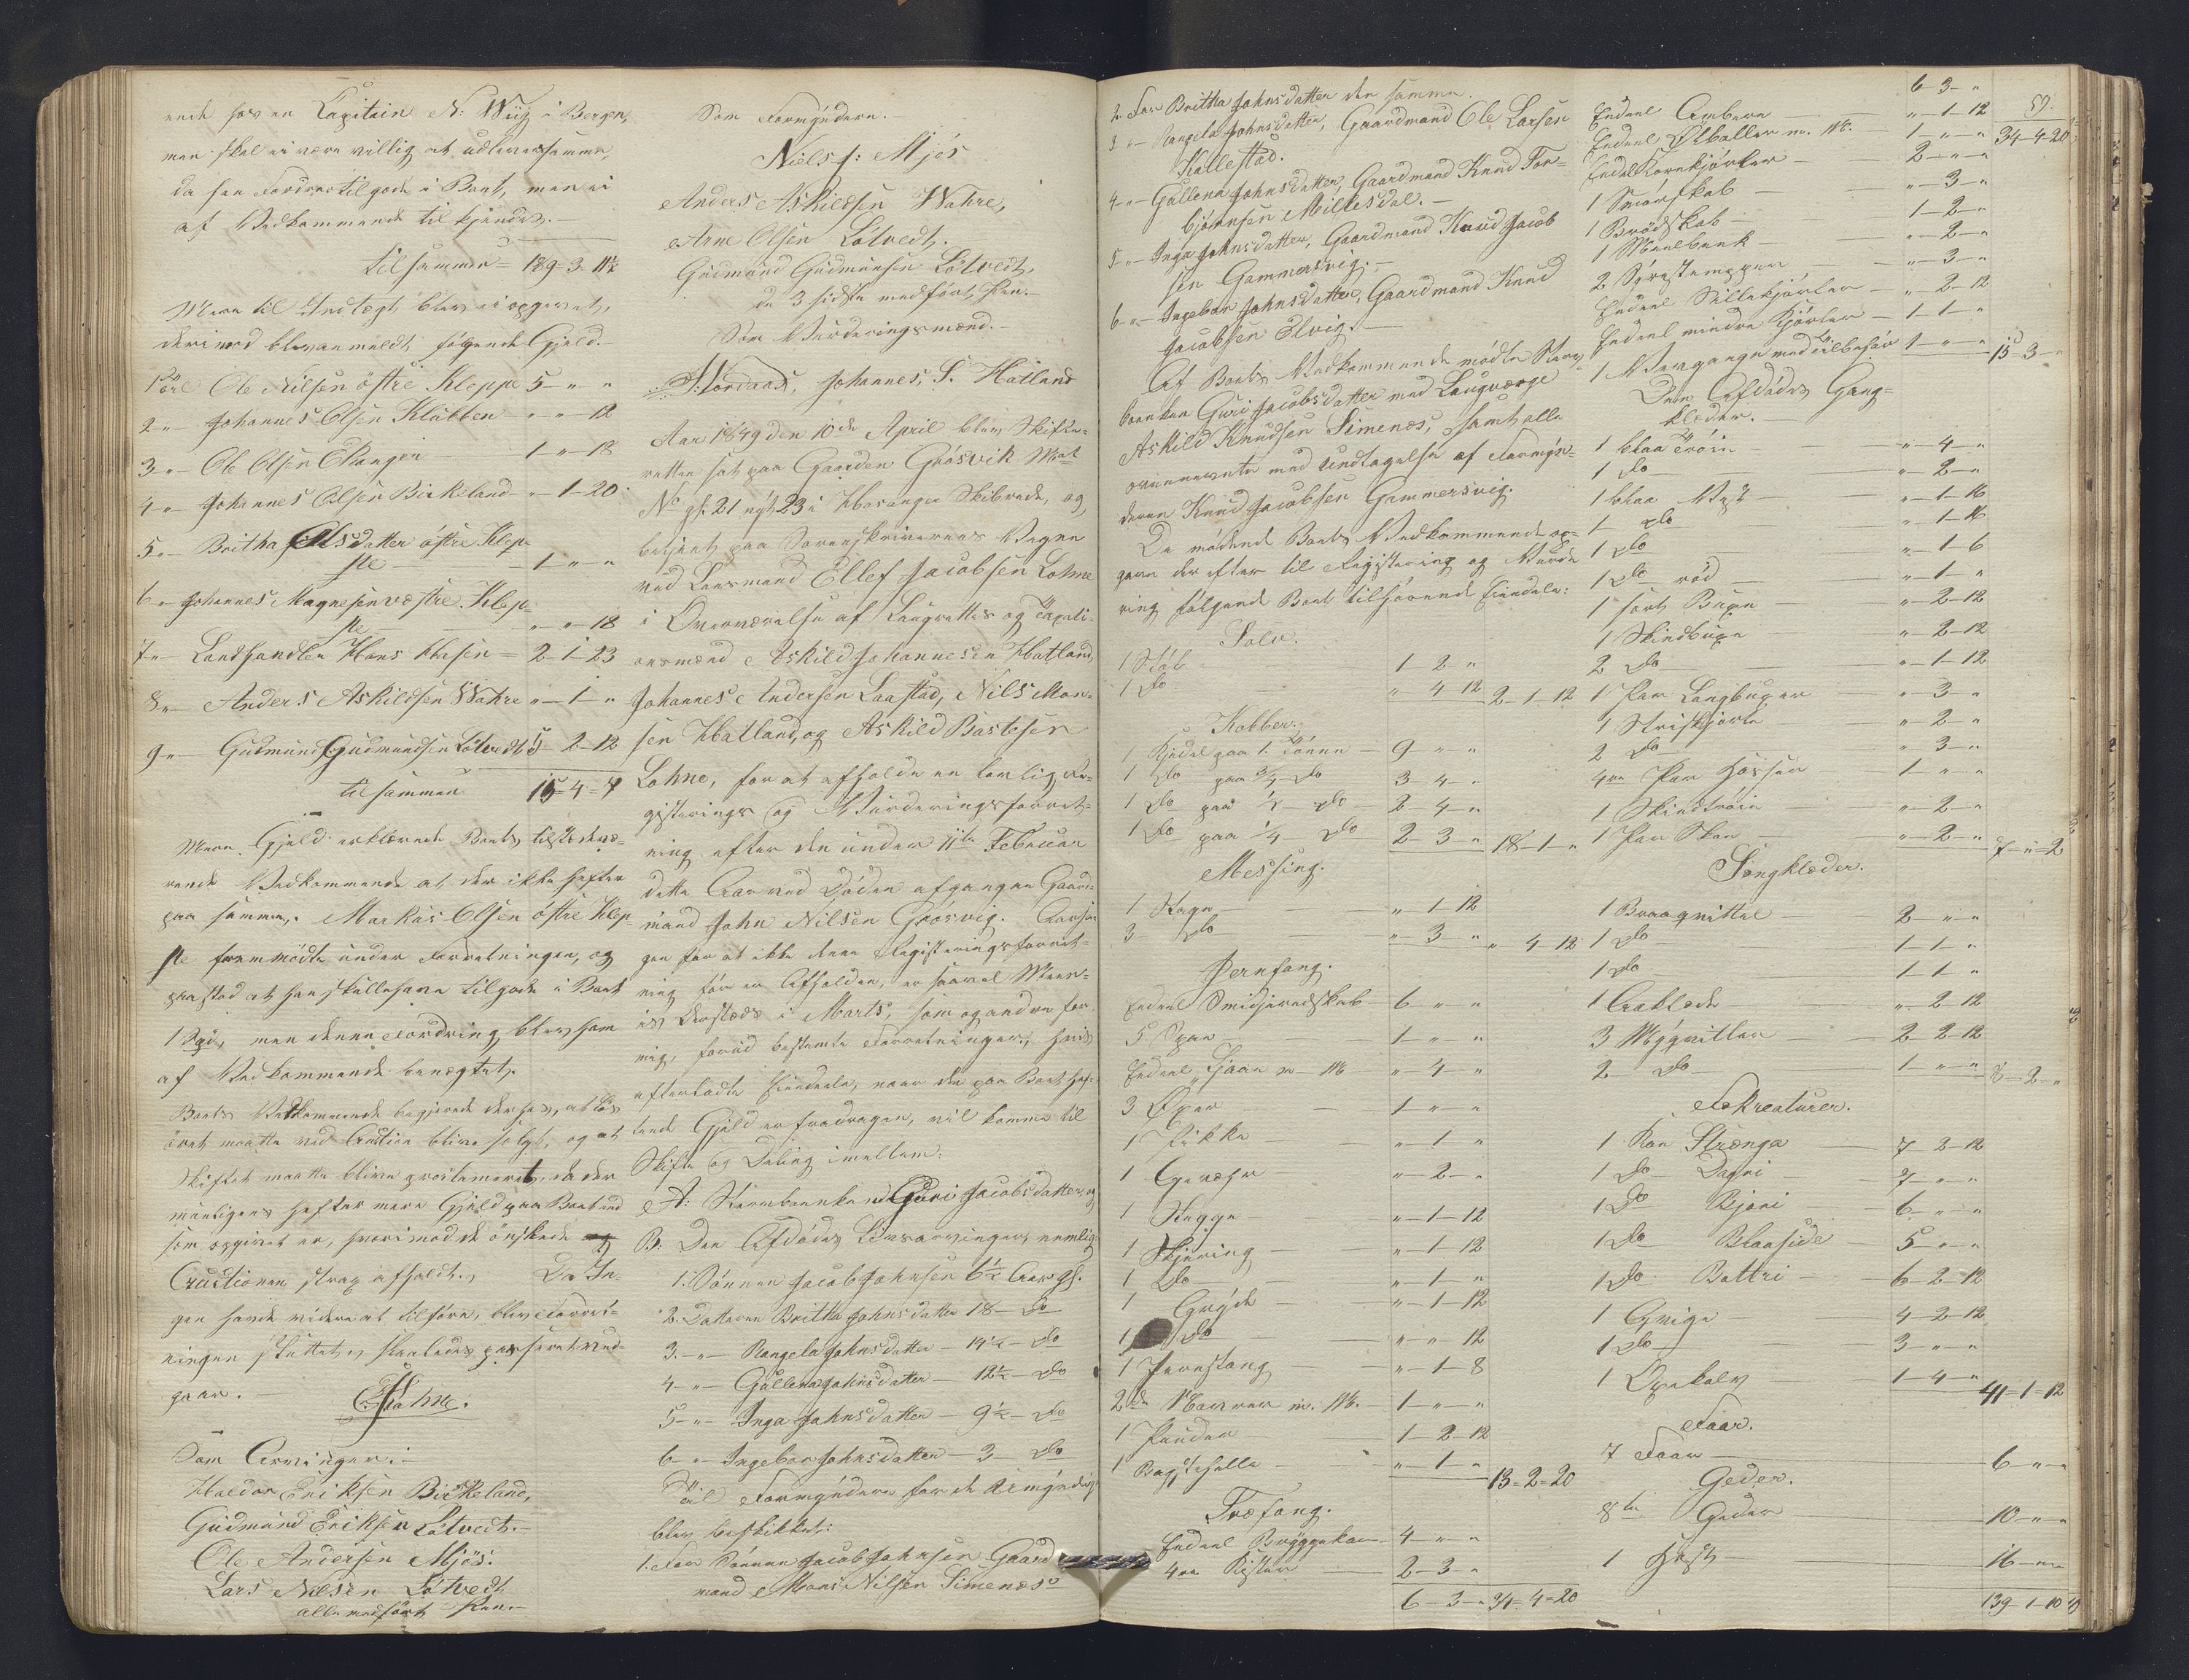 ende hos en Capitain N: Wiig i Bergen,
men skal ei være villig at udlevere samme,
da han fordrer tilgode i Boet, men ei
af Vedkommende tilkjendes. —
tilsammen = 189-3-11½
Mere til Indtægt blev ei opgivet,
derimod blev anmeldt følgende Gjeld. —
1 Ole Nilsen østre Kleppe 5 - " - "
2 " Johannes Olsen Klubben - " - " - 12
3 " Ole Olsen Eltangen — 1 - " - 18
4 " Johannes Olsen Birkeland - " - 1 - 20
5 " Britha Olsdatter østre Klep-
pe — 1 - " - "
6 " Johannes Magnesen vestre Klep-
pe — " - " - 18
7 " Landhandler Hans Husen — 2 - 1 - 23
8 " Anders Askildsen Wahre " - 1 - "
9 " Gudmund Gudmundsen Løtvedt 5 - 2 - 12
tilsammen 15 - 4 - 7
Mere Gjeld erklærede Boets tilstedevæ-
rende Vedkommende at der ikke hefter
paa samme. Markus Olsen østre Klep-
pe fremmødte under Forretningen, og
paastod at han skulle have tilgode i Boet
1 Spd, men denne Fordring blev ham
af Vedkommende benægtet.
Boets Vedkommende begjerede derhos, at Løs-
øret maatte ved Auction blive solgt, og at
Skiftet maatte blive proclameret, da der
mueligens hefter mere Gjeld paa Boet end
som opgivet er, hvorimod de ønskede
Auctionen strax afholdt. Da In-
gen havde videre at tilføre, blev Forret-
ningen sluttet, saaledes passeret ved-
gaar. —
E Lohne.
Som Arvinger: —
Haldor Eriksen Birkeland,
Gudmund Eriksen Løtvedt. —
Ole Andersen Mjøs.
Lars Nilsen Løtvedt
alle medført Pen. —
Som Formyndere.
Niels J: Mjös
Anders Askildsen Wahre,
Arne Olsen Løtvedt.
Gudmund Gudmunsen Løtvedt,
de 3 sidste medført Pen. —
Som Vurderingsmænd. —
Johannes, S. Hatland
Aar 1849 den 10de April blev Skifte-
retten sat paa Gaarden Grøsvik Mat-
No gl. 21 nyt 23 i Hosanger Skibrede, og
betjent paa Sorenskriverens Vegne
ved Lensmand Ellef Jacobsen Lohne
i Overværelse af Laugrettes og Taxati-
onsmænd Askild Johannesen Hatland,
Johannes Andersen Laastad, Nils Mon-
sen Hatland, og Askild Bastesen
Lohne, for at afholde en lovlig Re-
gisterings og Vurderingsforret-
ning efter den under 11te Februar
dette Aar ved Døden afgangne Gaard-
mand John Nilsen Grøsvig. Aarsa-
gen for at ikke denne Registeringsforret-
ning før er afholden, er saavel
i Marts, som og andre for
mig, forud bestemte Forretninger, hvis
efterladte Eiendele, naar den paa Boet hef-
tende Gjeld er fradragen, vil komme til
Skifte og Deling imellem:
A: Stervboenken Guri Jacobsdatter, og
B: Den Afdødes Livsarvinger, nemlig
1. Sønnen Jacob Johnsen 6½ Aar gl.
2. Datteren Britha Johnsdatter 18 — Do
3. — " — Rangela Johnsdatter — 14½ — Do
4 — " — Gullena Johnsdatter — 12½ — Do
5 — " — Inga Johnsdatter — 9½ — Do
6 — " — Ingebor Johnsdatter — 3 — Do
Til Formyndere for de Umyndige
blev beskikket:
1. For Sønnen Jacob Johnsen Gaard-
mand Mons Nilsen Simenæs.
2. For Britha Johnsdatter den samme.
3 — " — Rangela Johnsdatter, Gaardmand Ole Larsen
Hallestad.
4 — " — Gullena Johnsdatter, Gaardmand Knud Tor-
bjørnsen Mitkesdal. —
5 — " — Inga Johnsdatter, Gaardmand Knud Jacob
sen Gammersvig. —
6 — " — Ingebor Johnsdatter, Gaardmand Knud
Jacobsen Elvig. —
Af Boets Vedkommende mødte Sterv-
boenken Guri Jacobsdatter med Laugværge
Askild Knudsen Simenæs, samt alle
ovennævnte med Undtagelse af Formyn-
deren Knud Jacobsen Gammersvig.
De mødende Boets Vedkommende op-
gave derefter til Registering og Vurde-
ring følgende Boet tilhørende Eiendele:
Sølv.
1 Støb — 1 - 2 - "
1 Do " - 4 - 12 2 - 1 - 12
Kobber.
1 Kjedel paa 1. Tønne — 9 - " - "
1 Do paa ¾ Do 3 - 4 - "
1 Do paa ½ — Do 2 - 4 - "
1 Do paa ¼ Do 2 - 3 - " 18 - 1 - "
Messing.
1 Stage — " - 1 - 12
3 Do — " - 3 - " " - 4 - 12
Jernfang.
Endeel Smidjeredskab — 6 - " - "
5 — 1 - " - "
Endeel Ljaaer m. M. " - 4 - "
3 Øxer — 1 - " - "
1 — " - 1 - "
1 — " - 2 - "
1 — " - 1 - 12
1 Skjæring — " - 1 - 12
1 Do — " - 1 - "
1 Gryde — " - 1 - 12
1 Do — " - " - 12
1 Jernstang — " - 1 - 8
2de Navrer m. M. — 1 - " - "
1 Punder — 1 - 2 - 12
1 Bagstehelle — " - 1 - " 13 - 2 - 20
Træfang.
Endeel Bryggekar 4 - " - "
4re Kister 2 - 3 - "
6 - 3 - " 34 - 4 - 20
6 - 3 - " 59.
Endeel Ambere — " - 1 - 12 34-4-20
Endeel Ølboller m. M. — 1 - " - "
Endeel Kornkjørler — 2 - " - "
1 Smørskab — " - 3 - "
1 Brødskab — 1 - 2 - "
1 Meelbenk — " - 2 - "
2 Syrestamper — " - 3 - "
Endeel Sillekjørler — " - 2 - 12
Endeel mindre Kjørler — 1 - 1 - "
1 Vævgange med Tilbehør 1 - " - " 15 - 3 - "
Den Afdødes Gang-
klæder.
1 blaa Trøie — " - 4 - "
1 Do — " - 2 - "
1 blaa Vest — " - 1 - 16
1 Do — " - 1 - 16
1 Do — " - 1 - 6
1 Do rød — " - 1 - "
1 sort Buxe — " - 2 - 12
1 Skindbuxe — " - 2 - 12
2 Do — " - 1 - 12
1 Par Langbuxer — " - 3 - "
1 Striskjorte — " - 2 - "
2 Do — " - 3 - "
4re Par Hoser — 1 - " - "
1 Skindtrøie — " - 2 - "
1 Par Skoe — " - 2 - " 7 - " - 2
Sengklæder.
1 Braagnittel — 2 - " - "
1 Do — 1 - 1 - "
1 Do — 1 - 1 - "
1 Aaklæde — " - 2 - 12
3 — 2 - 2 - 12
2 Do — 1 - " - " 8 - 2 - "
Fækreaturer.
1 Koe Strænga — 7 - 2 - 12
1 Do Dagri — 7 - " - "
1 Do Bjøri — 6 - " - "
1 Do Blaaside — 5 - " - "
1 Do Bottri — 6 - 2 - 12
1 Qvige — 4 - 2 - 12
1 Do — 3 - " - "
1 Oxekalv — 1 - 4 - " 41 - 1 - 12
Faar.
7 Faar — 6 - " - "
Geder.
8te Geder — 10 - " - "
1 Hest — 16 - " - "
139 - 1 - 10